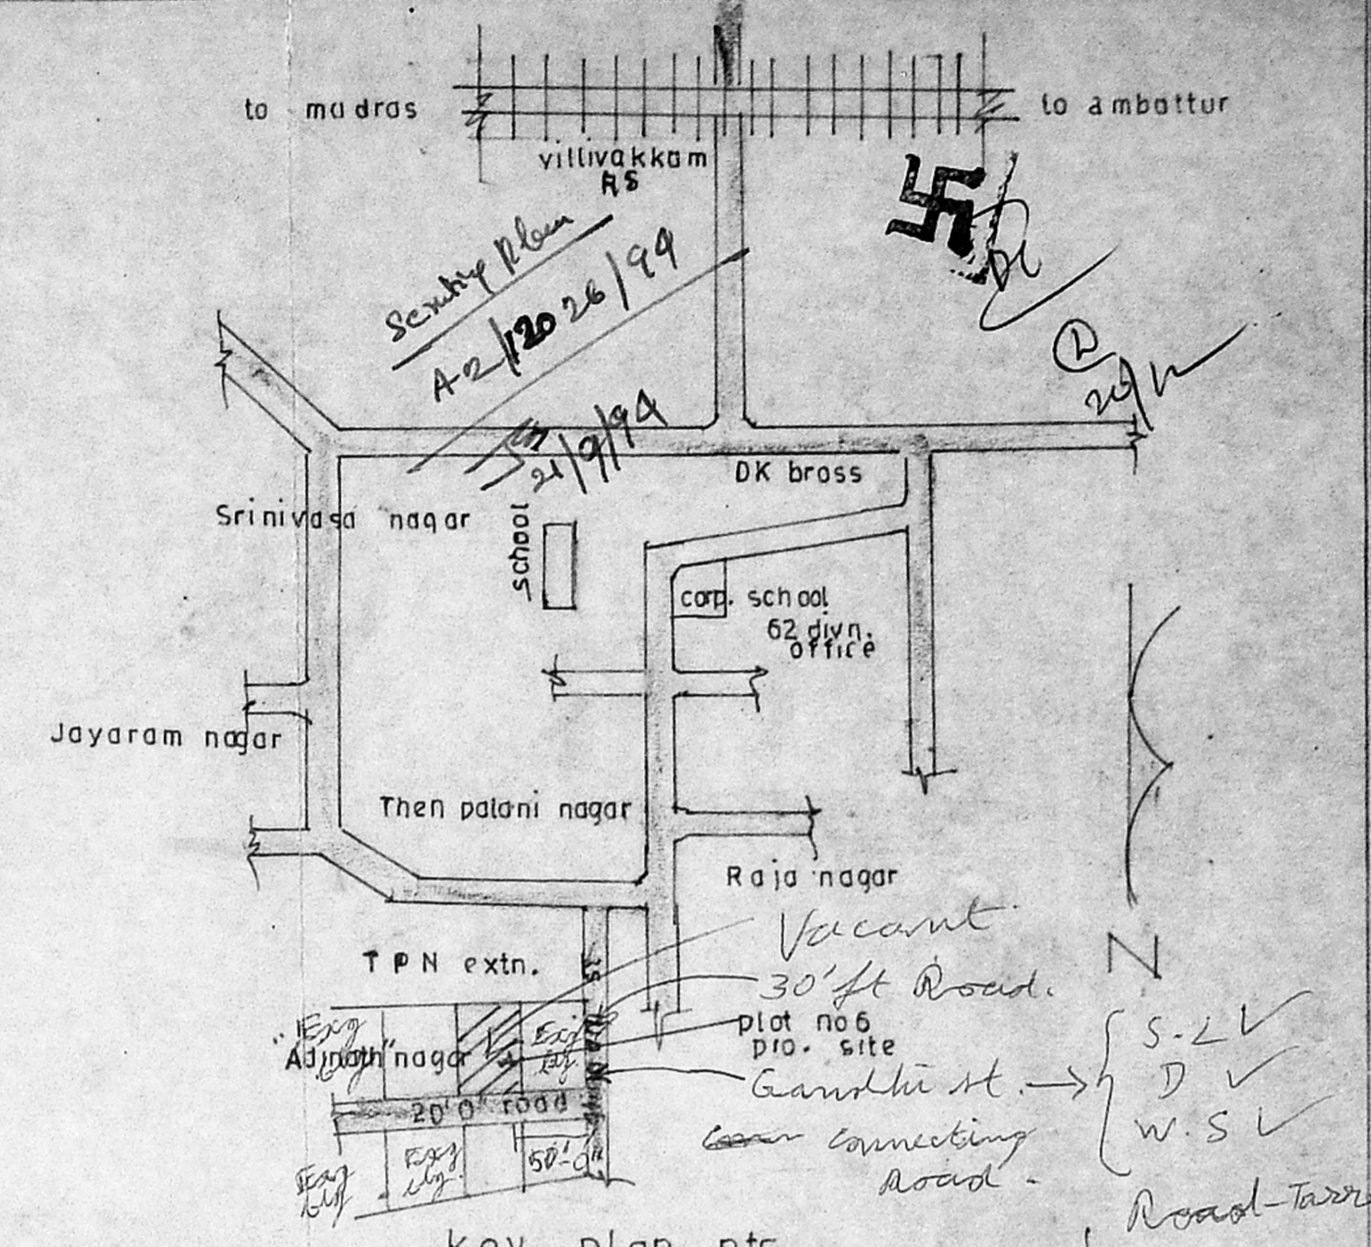 to madras
to ambattur
villivakkam
RS
Scrutiny Plan
A2/12026/94
21/9/94
DK bross
Srinivasa nagar
school
corp. school
62 divn.
office
Jayaram nagar
Then palani nagar
Raja nagar
Vacant
TPN extn.
30' ft Road.
N
plot no 6
pro. site
S.L
"Adinath" nagar
Exg
Exg
Gandhi st.
D
20'0" road
connecting
Road.
W.S
Exg
Exg
50'-0"
Road-Tarr
key plan nts